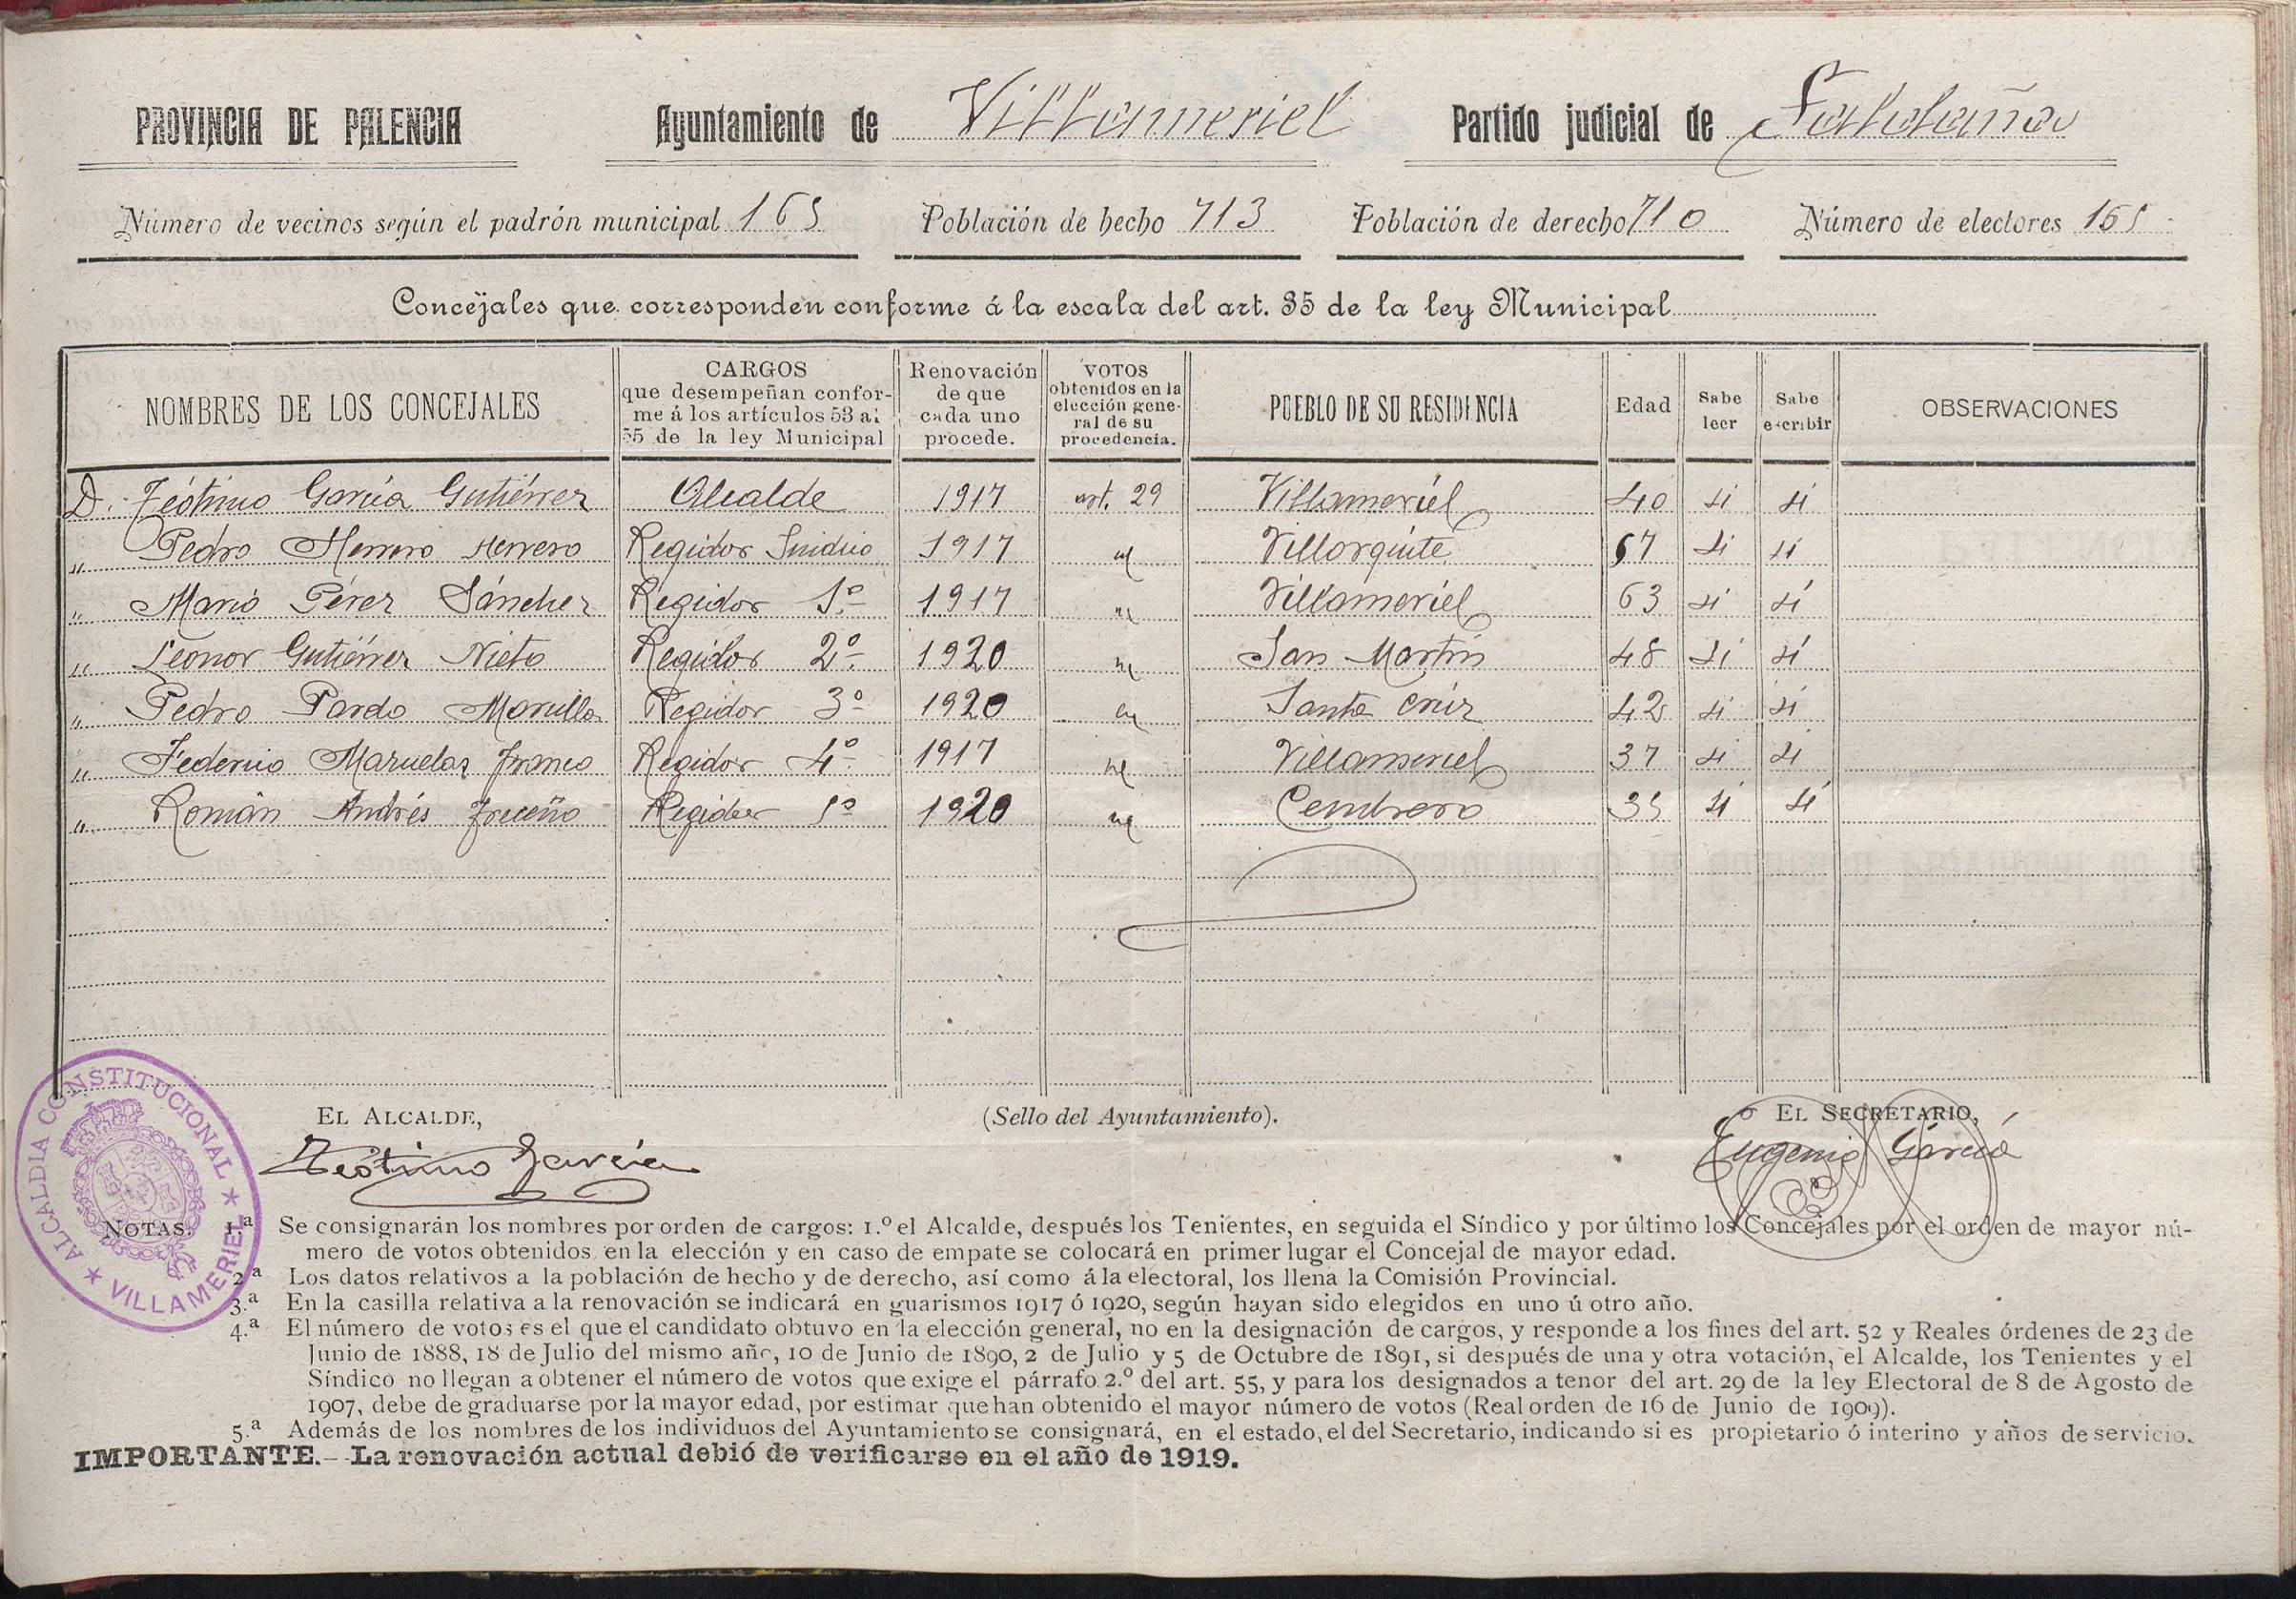 PROVINCIA DE PALENCIA Ayuntamiento de Villameriel Partido judicial de Saldaña
Número de vecinos según el padrón municipal 165 Población de hecho 713 Población de derecho 710 Número de electores 165
Concejales que corresponden conforme á la escala del art. 35 de la ley Municipal
NOMBRES DE LOS CONCEJALES
CARGOS
que desempeñan confor-
me á los artículos 53 al
55 de la ley Municipal
Renovación
de que
cada uno
procede.
VOTOS
obtenidos en la
elección gene-
ral de su
procedencia.
PUEBLO DE SU RESIDENCIA
Edad
Sabe
leer
Sabe
escribir
OBSERVACIONES
D. Teótimo García Gutiérrez Alcalde 1917 art. 29 Villameriel 40 si si
„ Pedro Herrero Herrero Regidor Sindico 1917 Villorquite 67 si si
„ Mario Pérez Sánchez Regidor 1º 1917 Villameriel 63 si si
„ Leonor Gutiérrez Nieto Regidor 2º 1920 San Martín 48 si si
„ Pedro Pardo Regidor 3º 1920 Santa Cruz 42 si si
„ Federico Franco Regidor 4º 1917 Villameriel 37 si si
„ Román Andrés Regidor 5º 1920 Cembrero 35 si si
EL ALCALDE, (Sello del Ayuntamiento). EL SECRETARIO,
Teótimo García Eugenio García
ALCALDIA CONSTITUCIONAL ★ VILLAMERIEL ★
NOTAS. 1.ª Se consignarán los nombres por orden de cargos: 1.º el Alcalde, después los Tenientes, en seguida el Síndico y por último los Concejales por el orden de mayor nú-
mero de votos obtenidos en la elección y en caso de empate se colocará en primer lugar el Concejal de mayor edad.
2.ª Los datos relativos a la población de hecho y de derecho, así como á la electoral, los llena la Comisión Provincial.
3.ª En la casilla relativa a la renovación se indicará en guarismos 1917 ó 1920, según hayan sido elegidos en uno ú otro año.
4.ª El número de votos es el que el candidato obtuvo en la elección general, no en la designación de cargos, y responde a los fines del art. 52 y Reales órdenes de 23 de
Junio de 1888, 18 de Julio del mismo año, 10 de Junio de 1890, 2 de Julio y 5 de Octubre de 1891, si después de una y otra votación, el Alcalde, los Tenientes y el
Síndico no llegan a obtener el número de votos que exige el párrafo 2.º del art. 55, y para los designados a tenor del art. 29 de la ley Electoral de 8 de Agosto de
1907, debe de graduarse por la mayor edad, por estimar que han obtenido el mayor número de votos (Real orden de 16 de Junio de 1909).
5.ª Además de los nombres de los individuos del Ayuntamiento se consignará, en el estado, el del Secretario, indicando si es propietario ó interino y años de servicio.
IMPORTANTE.—La renovación actual debió de verificarse en el año de 1919.